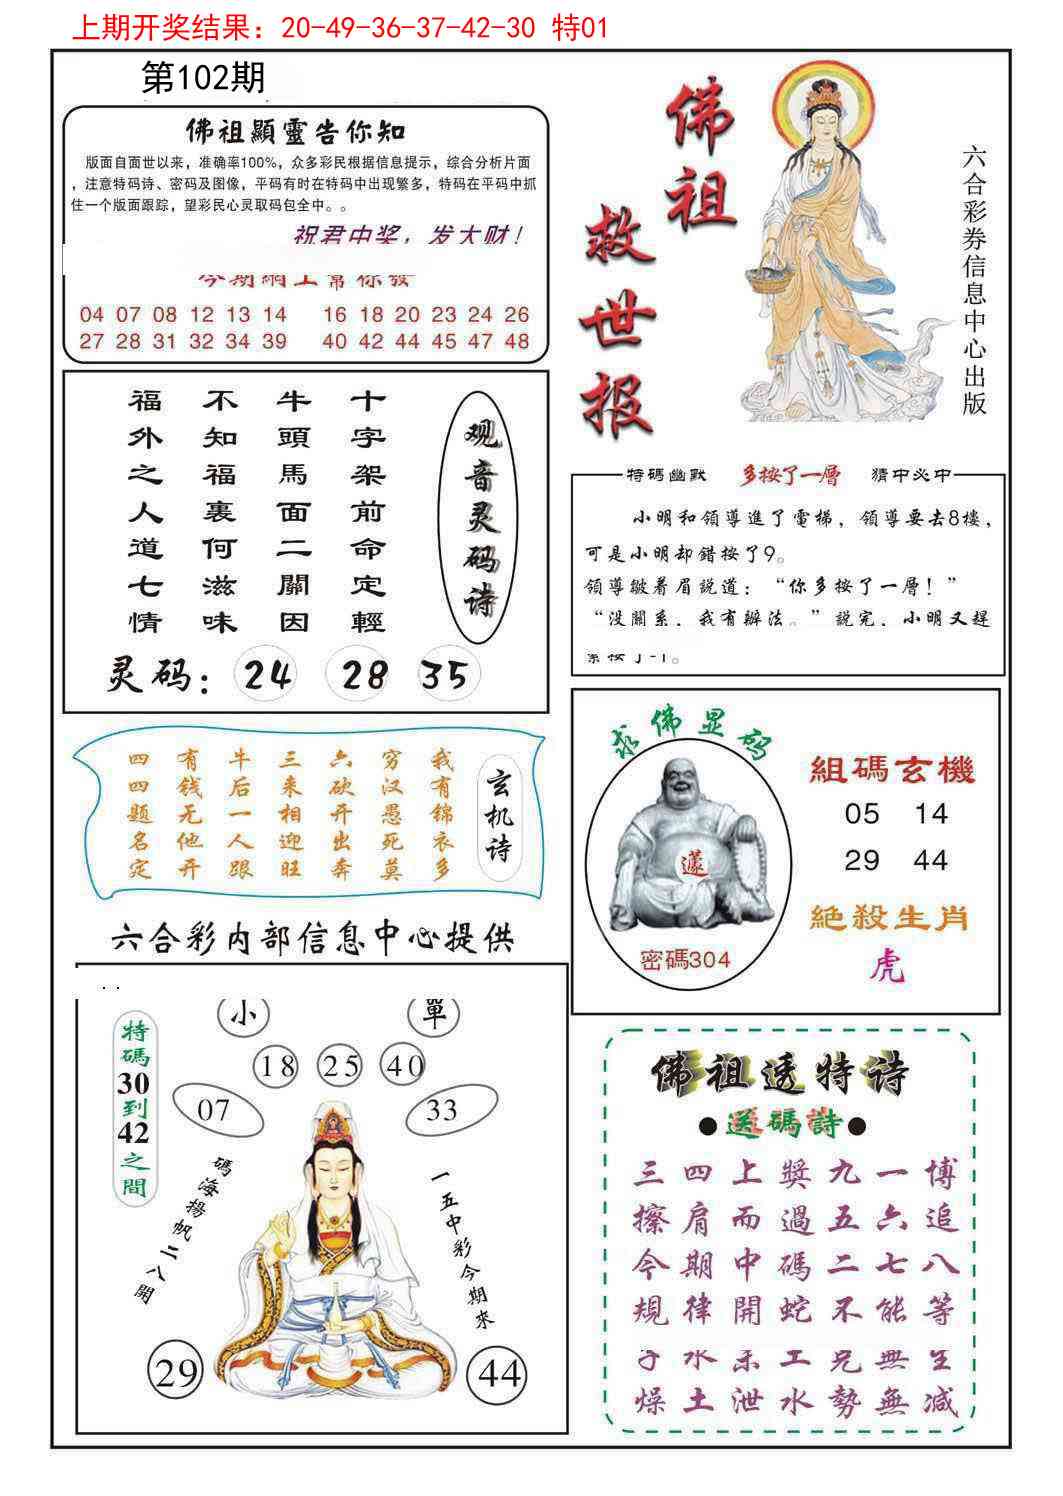 上期开奖结果：20-49-36-37-42-30 特01
第102期
佛祖顯靈告你知
版面自面世以来，准确率100%，众多彩民根据信息提示，综合分析片面
，注意特码诗、密码及图像，平码有时在特码中出现繁多，特码在平码中抓
住一个版面跟踪，望彩民心灵取码包全中。。
祝君中奖，发大财！
今期網上幫你發
04 07 08 12 13 14 16 18 20 23 24 26
27 28 31 32 34 39 40 42 44 45 47 48
佛祖
救世报
六合彩券信息中心出版
观音灵码诗
十字架前命定輕
牛頭馬面二關因
不知福裏何滋味
福外之人道七情
灵码：24 28 35
特碼幽默 多按了一層 猜中必中
小明和領導進了電梯，領導要去8樓，
可是小明却錯按了9。
領導皺着眉説道：“你多按了一層！”
“没關系，我有辦法。”説完，小明又趕
玄机诗
我有锦衣多
穷汉愚死莫
六砍开出奔
三来相迎旺
牛后一人跟
有钱无他开
四四题名定
求佛显码
密碼304
組碼玄機
05 14
29 44
絕殺生肖
虎
六合彩内部信息中心提供
小 單
18 25 40
07 33
特碼30到42之間
碼海揚帆二八開
一五中彩今期來
29 44
佛祖透特诗
●送碼詩●
三四上獎九一博
擦肩而過五六追
今期中碼二七八
規律開蛇不能等
燥土泄水勢無減